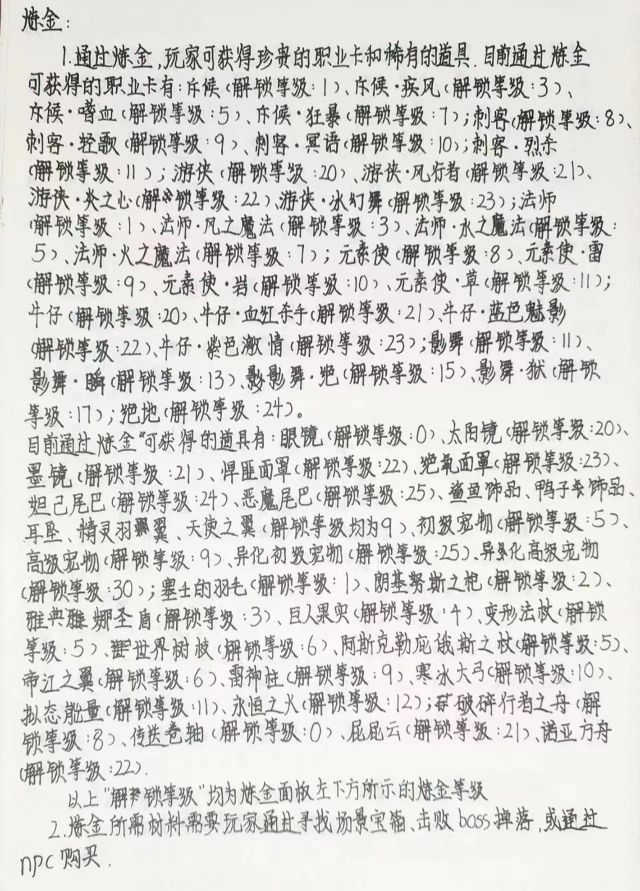 炼金：
1.通过炼金,玩家可获得珍贵的职业卡和稀有的道具.目前通过炼金
可获得的职业卡有:斥候(解锁等级:1)、斥候·疾风(解锁等级:3)、
斥候·嗜血(解锁等级:5)、斥候·狂暴(解锁等级:7);刺客(解锁等级:8)、
刺客·轻歌(解锁等级:9)、刺客·冥语(解锁等级:10);刺客·烈杀
(解锁等级:11);游侠(解锁等级:20)、游侠·风行者(解锁等级:21)、
游侠·炎之心(解锁等级:22)、游侠·冰幻舞(解锁等级:23);法师
(解锁等级:1)、法师·风之魔法(解锁等级:3)、法师·水之魔法(解锁等级:
5)、法师·火之魔法(解锁等级:7);元素使(解锁等级:8)、元素使·雷
(解锁等级:9)、元素使·岩(解锁等级:10)、元素使·草(解锁等级:11);
牛仔(解锁等级:20)、牛仔·血红杀手(解锁等级:21)、牛仔·蓝色魅影
(解锁等级:22)、牛仔·紫色激情(解锁等级:23);影舞(解锁等级:11)、
影舞·瞬(解锁等级:13)、影舞·绝(解锁等级:15)、影舞·狱(解锁
等级:17);绝地(解锁等级:24)。
目前通过炼金可获得的道具有:眼镜(解锁等级:0)、太阳镜(解锁等级:20)、
墨镜(解锁等级:21)、悍匪面罩(解锁等级:22)、绝氧面罩(解锁等级:23)、
妲己尾巴(解锁等级:24)、恶魔尾巴(解锁等级:25)、鲨鱼饰品、鸭子头饰品、
耳坠、精灵羽翼、天使之翼(解锁等级均为9)、初级宠物(解锁等级:5)、
高级宠物(解锁等级:9)、异化初级宠物(解锁等级:25)、异化高级宠物
(解锁等级:30);塞土的羽毛(解锁等级:1)、朗基努斯之枪(解锁等级:2)、
雅典娜圣盾(解锁等级:3)、巨人果实(解锁等级:4)、变形法杖(解锁
等级:5)、世界树枝(解锁等级:6)、阿斯克勒庇俄斯之杖(解锁等级:5)、
帝江之翼(解锁等级:6)、雷神柱(解锁等级:9)、寒冰大弓(解锁等级:10)、
拟态能量(解锁等级:11)、永恒之火(解锁等级:12);破碎行者之舟(解
锁等级:8)、传送卷轴(解锁等级:0)、屁屁云(解锁等级:21)、诺亚方舟
(解锁等级:22).
以上"解锁等级"均为炼金面板左下方所示的炼金等级
2.炼金所需材料需要玩家通过寻找场景宝箱、击败boss掉落,或通过
npc购买.